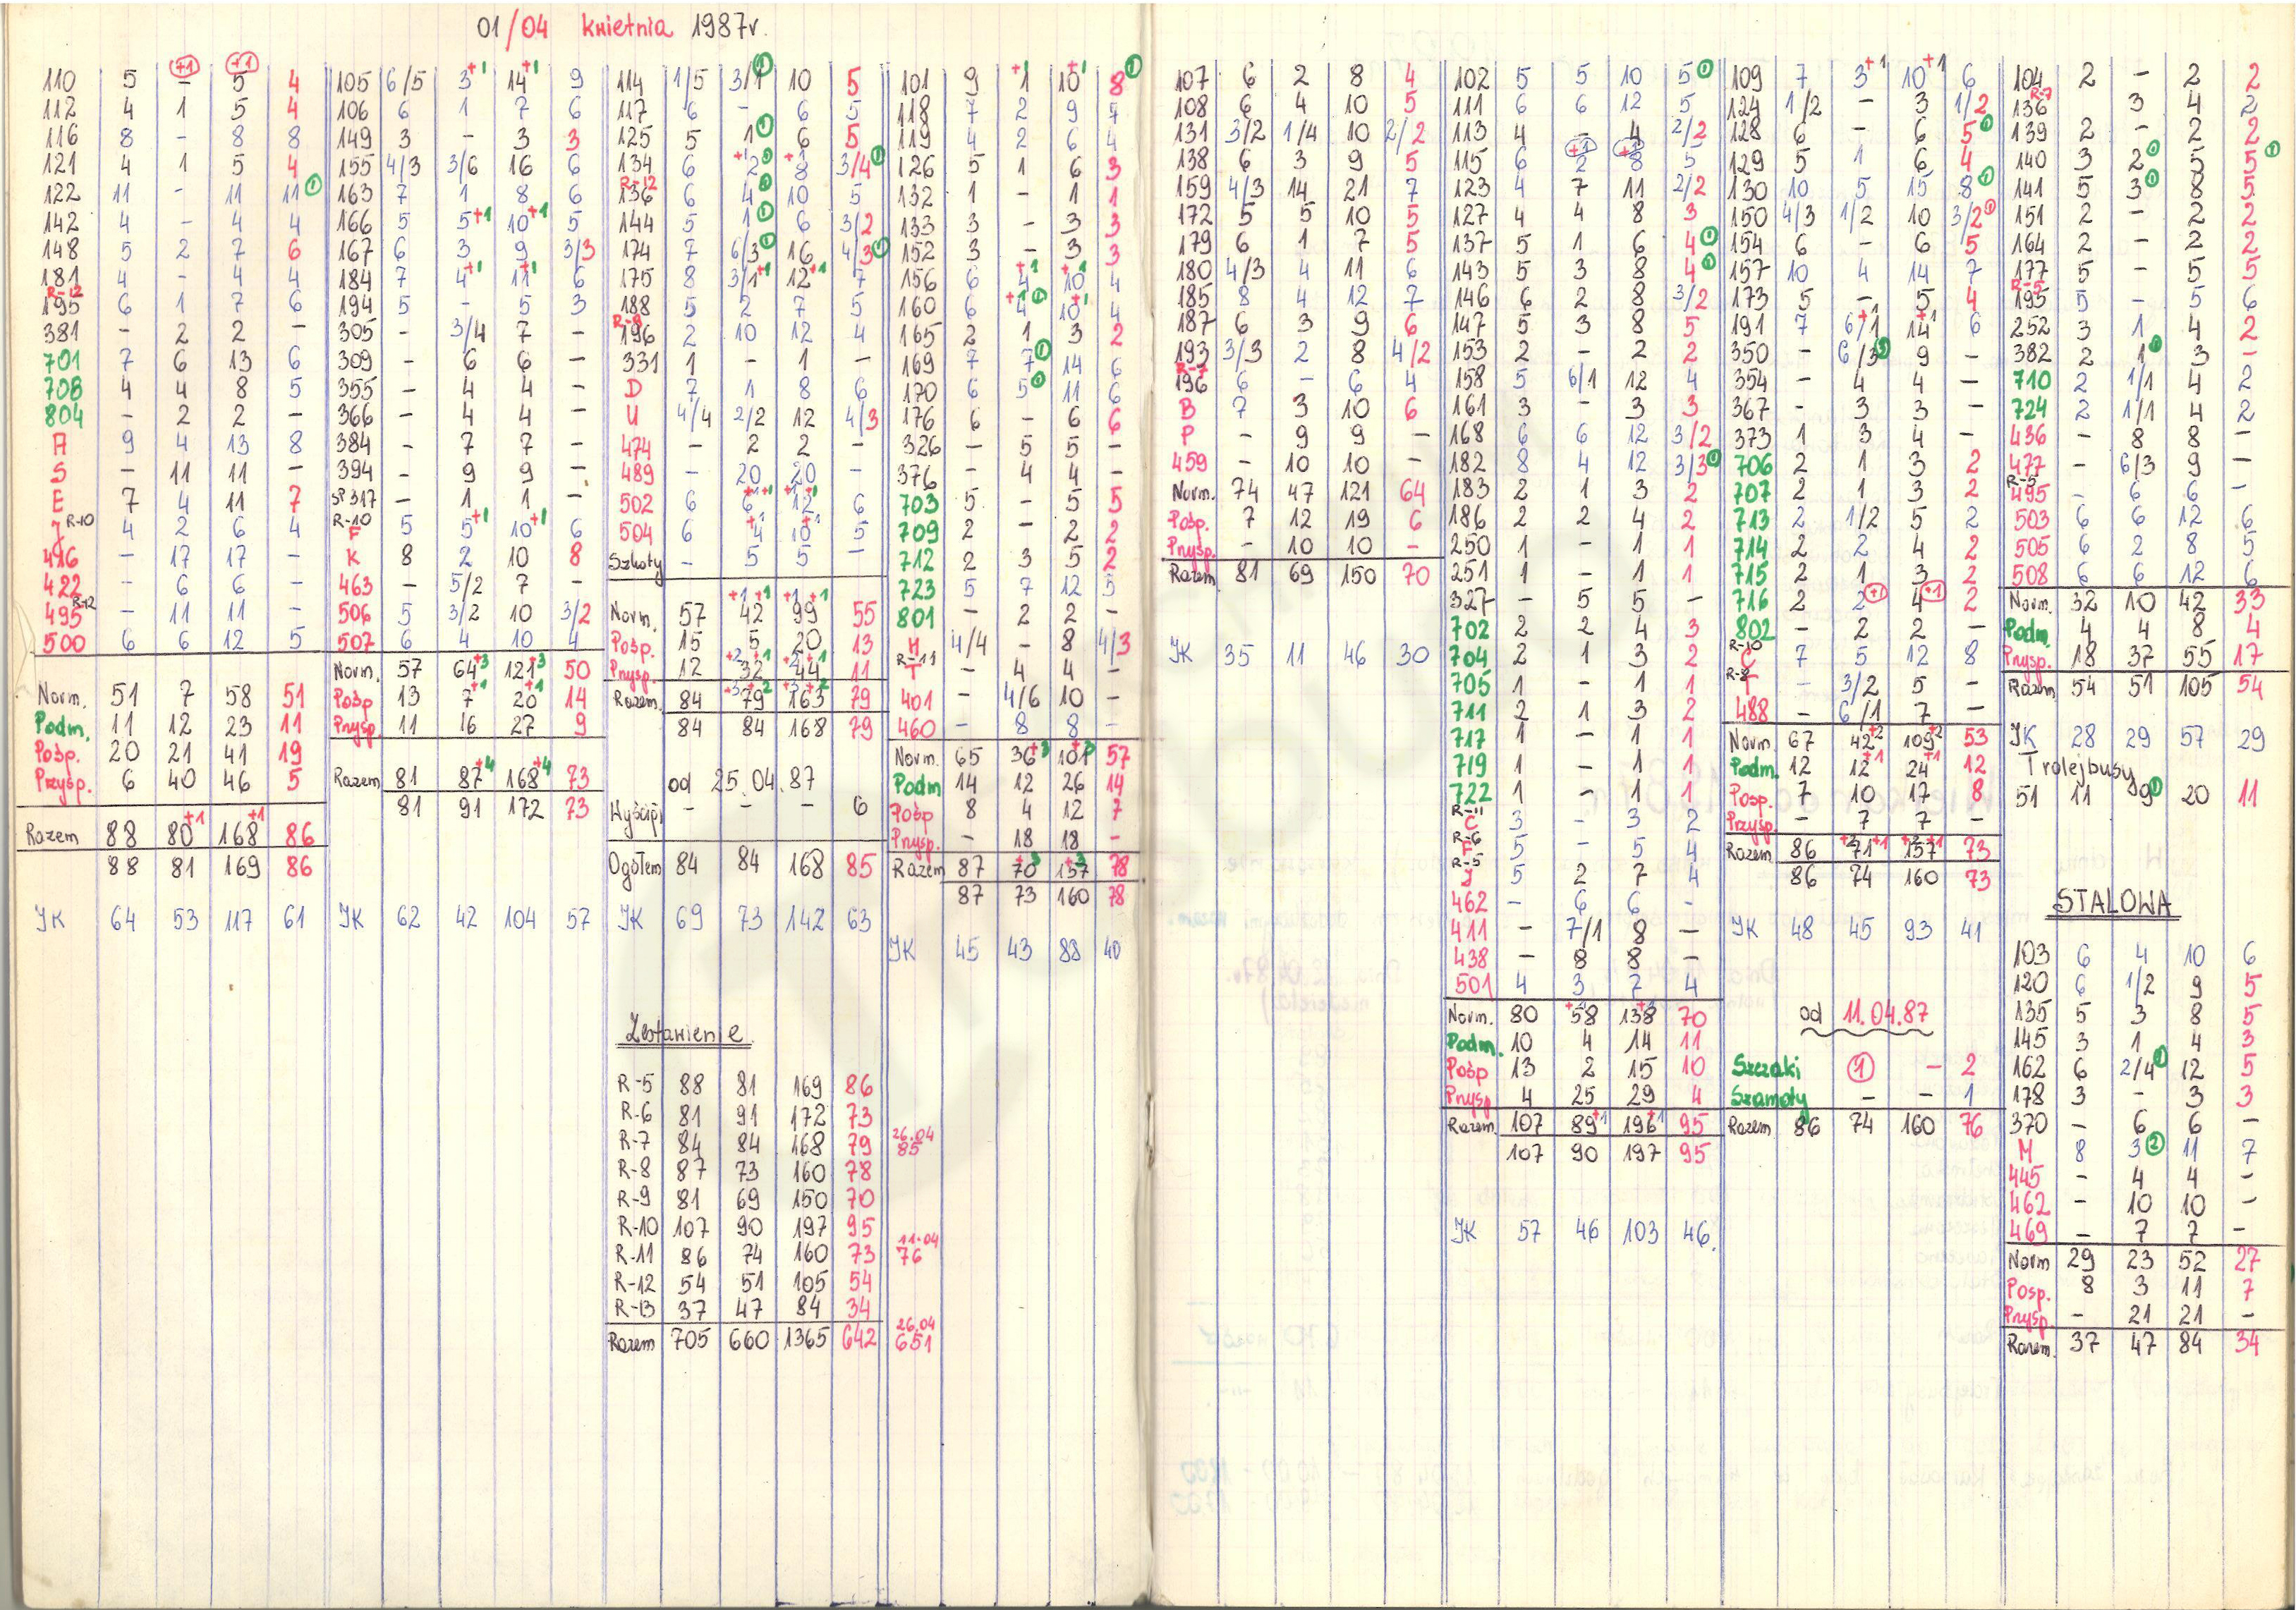 01/04 kwietnia 1987r.
110 5 - +1 5 +1 4
112 4 1 5 4
116 8 - 8 8
121 4 1 5 4
122 11 - 11 11 1
142 4 - 4 4
148 5 2 7 6
181 4 - 4 4
R-12
195 6 1 7 6
381 - 2 2 -
701 7 6 13 6
708 4 4 8 5
804 - 2 2 -
A 9 4 13 8
S - 11 11 -
E 7 4 11 7
J R-10 4 2 6 4
416 - 17 17 -
422 - 6 6 -
495 R-12 - 11 11 -
500 6 6 12 5
Norm. 51 7 58 51
Podm. 11 12 23 11
Posp. 20 21 41 19
Przysp. 6 40 46 5
Razem 88 80+1 168+1 86
88 81 169 86
JK 64 53 117 61
105 6/5 3+1 14+1 9
106 6 1 7 6
149 3 - 3 3
155 4/3 3/6 16 6
163 7 1 8 6
166 5 5+1 10+1 5
167 6 3 9 3/3
184 7 4+1 11+1 6
194 5 - 5 3
305 - 3/4 7 -
309 - 6 6 -
355 - 4 4 -
366 - 4 4 -
384 - 7 7 -
394 - 9 9 -
SP 317 - 1 1 -
R-10
F 5 5+1 10+1 6
K 8 2 10 8
463 - 5/2 7 -
506 5 3/2 10 3/2
507 6 4 10 4
Norm. 57 64+3 121+3 50
Pośp 13 7+1 20+1 14
Prysp. 11 16 27 9
Razem 81 87+4 168+4 73
81 91 172 73
JK 62 42 104 57
114 1/5 3/1 1 10 5
117 6 - 6 5
125 5 1 1 6 5
134 6 +1 2 1 +1 8 3/4 1
R-12
136 6 4 10 5
144 5 1 1 6 3/2
174 7 6/3 1 16 4/3 1
175 8 3/1+1 12+1 7
188 5 2 7 5
R-8
196 2 10 12 4
331 1 - 1 -
D 7 1 8 6
U 4/4 2/2 12 4/3
474 - 2 2 -
489 - 20 20 -
502 6 6+1+1 12+1+1 6
504 6 +1 4 10+1 5
Szkoły - 5 5 -
+1 +1 +1 +1
Norm. 57 42 99 55
Pośp. 15 5 20 13
Prysp. 12 +2 32 +1 +2 44 +1 11
Razem. 84 +3 79 +2 +3 163 +2 79
84 84 168 79
od 25.04.87
Wyścigi - - - 6
Ogółem 84 84 168 85
JK 69 73 142 63
Zestawienie
R-5 88 81 169 86
R-6 81 91 172 73
R-7 84 84 168 79 26.04 85
R-8 87 73 160 78
R-9 81 69 150 70
R-10 107 90 197 95
R-11 86 74 160 73 11.04 76
R-12 54 51 105 54
R-13 37 47 84 34
Razem 705 660 1365 642 26.04 651
101 9 1+1 10+1 8 1
118 7 2 9 5
119 4 2 6 4
126 5 1 6 3
132 1 - 1 1
133 3 - 3 3
152 3 - 3 3
156 6 4+1 10+1 4
160 6 +1 4 1 10+1 4
165 2 1 3 2
169 7 7 1 14 6
170 6 5 1 11 6
176 6 - 6 6
326 - 5 5 -
376 - 4 4 -
703 5 - 5 5
709 2 - 2 2
712 2 3 5 2
723 5 7 12 5
801 - 2 2 -
H 4/4 - 8 4/3
R-11
T - 4 4 -
401 - 4/6 10 -
460 - 8 8 -
Norm. 65 36+3 101+3 57
Podm 14 12 26 14
Pośp 8 4 12 7
Prysp. - 18 18 -
Razem 87 70+3 157+3 78
87 73 160 78
JK 45 43 88 40
107 6 2 8 4
108 6 4 10 5
131 3/2 1/4 10 2/2
138 6 3 9 5
159 4/3 14 21 7
172 5 5 10 5
179 6 1 7 5
180 4/3 4 11 6
185 8 4 12 7
187 6 3 9 6
193 3/3 2 8 4/2
R-7
196 6 - 6 4
B 7 3 10 6
P - 9 9 -
459 - 10 10 -
Norm. 74 47 121 64
Pośp. 7 12 19 6
Prysp. - 10 10 -
Razem 81 69 150 70
JK 35 11 46 30
102 5 5 10 5 1
111 6 6 12 5
113 4 - 4 2/2
115 6 +1 2 +1 8 5
123 4 7 11 2/2
127 4 4 8 3
137 5 1 6 4 1
143 5 3 8 4 1
146 6 2 8 3/2
147 5 3 8 5
153 2 - 2 2
158 5 6/1 12 4
161 3 - 3 3
168 6 6 12 3/2
182 8 4 12 3/3 1
183 2 1 3 2
186 2 2 4 2
250 1 - 1 1
251 1 - 1 1
327 - 5 5 -
702 2 2 4 3
704 2 1 3 2
705 1 - 1 1
711 2 1 3 2
717 1 - 1 1
719 1 - 1 1
722 1 - 1 1
R-11
C 3 - 3 2
R-6
F 5 - 5 4
R-5
J 5 2 7 4
462 - 6 6 -
411 - 7/1 8 -
438 - 8 8 -
501 4 3 7 4
Norm. 80 +1 58 138+1 70
Podm. 10 4 14 11
Pośp 13 2 15 10
Prysp 4 25 29 4
Razem. 107 89+1 196+1 95
107 90 197 95
JK 57 46 103 46.
109 7 3+1 10+1 6
124 1/2 - 3 1/2
128 6 - 6 5 1
129 5 1 6 4
130 10 5 15 8 1
150 4/3 1/2 10 3/2 1
154 6 - 6 5
157 10 4 14 7
173 5 - 5 4
191 7 6/1+1 14+1 6
350 - 6/3 9 -
354 - 4 4 -
367 - 3 3 -
373 1 3 4 -
706 2 1 3 2
707 2 1 3 2
713 2 1/2 5 2
714 2 2 4 2
715 2 1 3 2
716 2 2 +1 4 +1 2
802 - 2 2 -
R-10
C 7 5 12 8
R-8
T - 3/2 5 -
488 - 6/1 7 -
Norm. 67 42+2 109+2 53
Podm. 12 12+1 24+1 12
Posp. 7 10 17 8
Przysp. - 7 7 -
Razem 86 +2 71 +1 +2 157 +1 73
86 74 160 73
JK 48 45 93 41
od 11.04.87
Szczaki 1 - 2
Szamoty - - 1
Razem 86 74 160 76
104 2 - 2 2
R-7
136 3 4 2
139 2 - 2 2
140 3 2 1 5 5 1
141 5 3 1 8 5
151 2 - 2 2
164 2 - 2 2
177 5 - 5 5
R-5
195 5 - 5 6
252 3 1 4 2
382 2 1 3 -
710 2 1/1 4 2
724 2 1/1 4 2
436 - 8 8 -
477 - 6/3 9 -
R-5
495 - 6 6 -
503 6 6 12 6
505 6 2 8 5
508 6 6 12 6
Norm. 32 10 42 33
Podm. 4 4 8 4
Prysp. 18 37 55 17
Razem 54 51 105 54
JK 28 29 57 29
Trolejbusy
51 11 9 1 20 11
STALOWA
103 6 4 10 6
120 6 1/2 9 5
135 5 3 8 5
145 3 1 4 3
162 6 2/4 1 12 5
178 3 - 3 3
370 - 6 6 -
M 8 3 2 11 7
445 - 4 4 -
462 - 10 10 -
469 - 7 7 -
Norm 29 23 52 27
Posp. 8 3 11 7
Prysp. - 21 21 -
Razem. 37 47 84 34